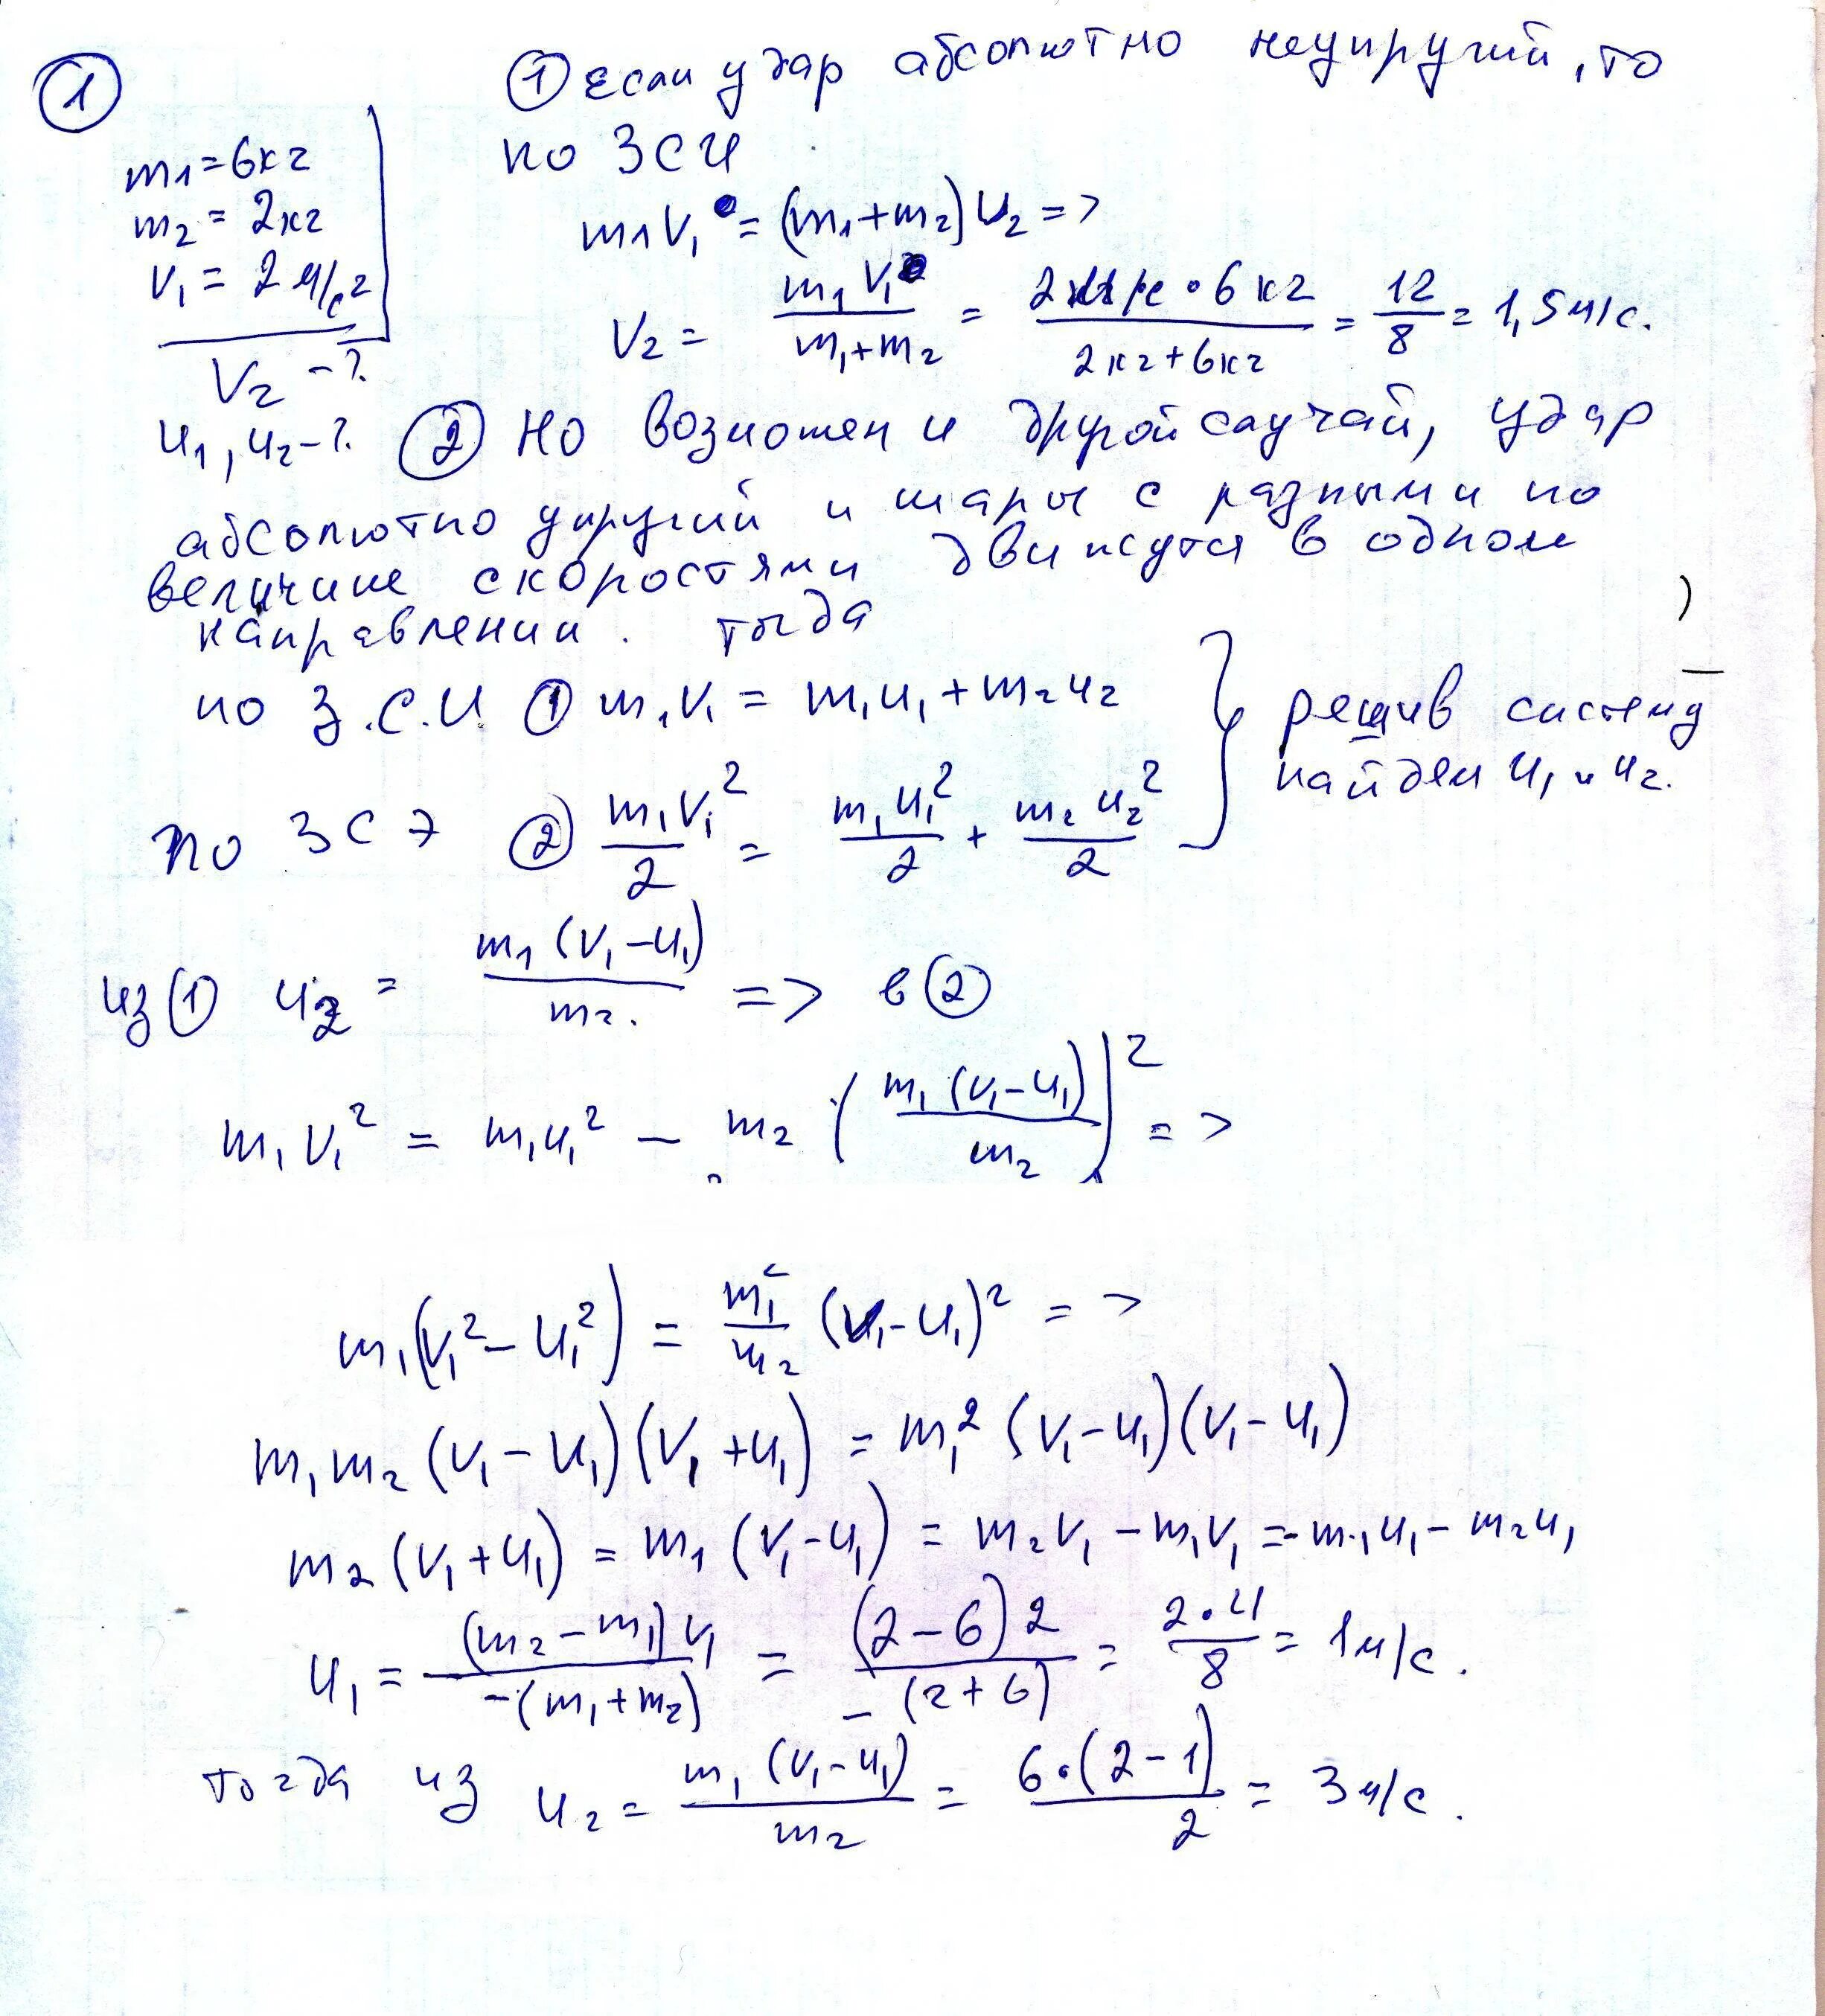 ①
m₁=6кг
m₂ = 2кг
V₁ = 2 м/с²
V₂ - ?
u₁, u₂ - ?
① Если удар абсолютно неупругий, то
по ЗСИ
m₁V₁ = (m₁+m₂)U₂ =>
V₂ = m₁V₁/(m₁+m₂) = 2м/с • 6кг/(2кг+6кг) = 12/8 = 1,5м/с.
② Но возможен и другой случай, удар
абсолютно упругий и шары с разными по
величине скоростями движутся в одном
направлении. тогда
по З.С.И. ① m₁V₁ = m₁u₁ + m₂u₂
по ЗСЭ ② m₁V₁²/2 = m₁u₁²/2 + m₂u₂²/2
} решив систему
найдем u₁ и u₂.
из ① u₂ = m₁(V₁-u₁)/m₂. => в ②
m₁V₁² = m₁u₁² - m₂(m₁(V₁-u₁)/m₂)² =>
m₁(V₁² - u₁²) = m₁²/m₂ (V₁-u₁)² =>
m₁m₂(V₁-u₁)(V₁+u₁) = m₁²(V₁-u₁)(V₁-u₁)
m₂(V₁+u₁) = m₁(V₁-u₁) = m₂V₁ - m₁V₁ = -m₁u₁ - m₂u₁
u₁ = (m₂-m₁)V₁/-(m₁+m₂) = (2-6)2/-(2+6) = 2•4/8 = 1м/с.
тогда из u₂ = m₁(V₁-u₁)/m₂ = 6•(2-1)/2 = 3м/с.